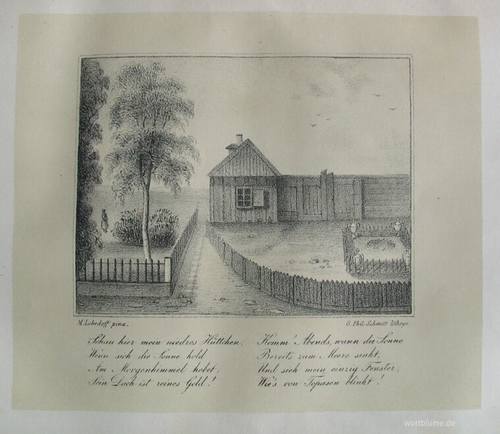 M. Lehedeff pinx.
G. Phil. Schmitt lithogr.
Schau hier mein niedres Hüttchen,
Wenn sich die Sonne hold
Am Morgenhimmel hebet,
Sein Dach ist reines Gold!
Komm' Abends, wann die Sonne
Bereits zum Meere sinkt,
Und sieh mein einzig Fenster,
Wie's von Topasen blinkt!
wattblume.de